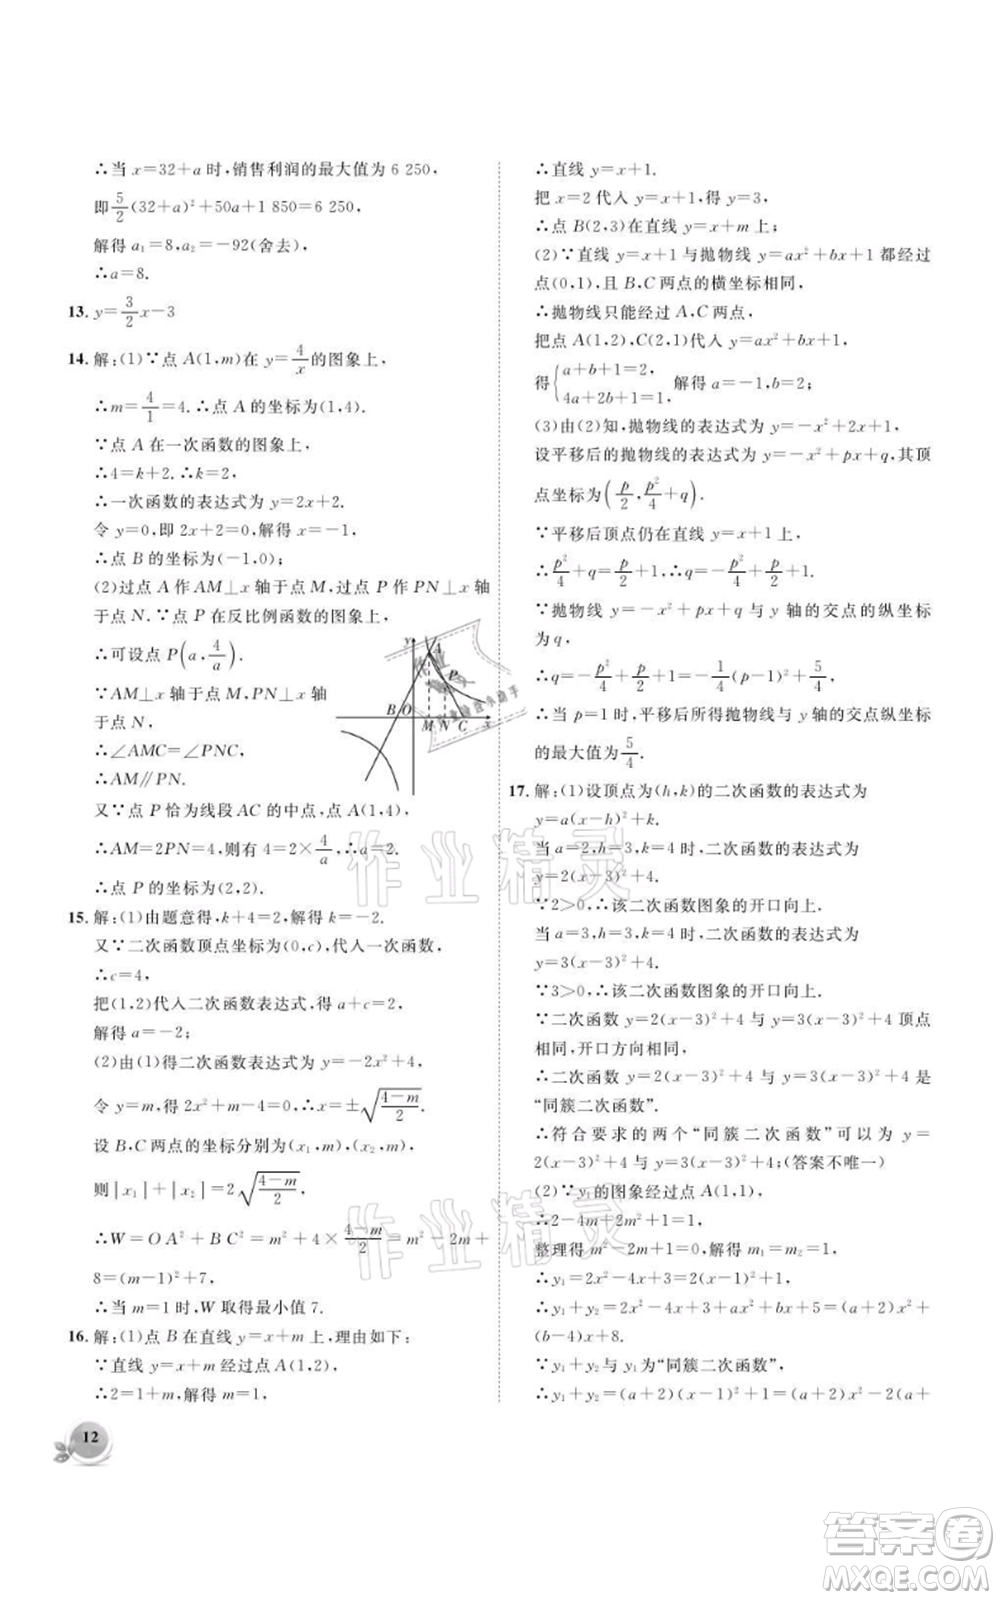 ∴当 x=32+a 时,销售利润的最大值为 6 250,
即5/2(32+a)²+50a+1 850=6 250,
解得 a₁=8,a₂=-92(舍去).
∴a=8.
13. y=3/2x-3
14. 解:(1)∵点 A(1,m)在 y=4/x的图象上,
∴m=4/1=4.∴点 A 的坐标为(1,4).
∵点 A 在一次函数的图象上,
∴4=k+2.∴k=2,
∴一次函数的表达式为 y=2x+2.
令 y=0,即 2x+2=0,解得 x=-1,
∴点 B 的坐标为(-1,0);
(2)过点 A 作 AM⊥x 轴于点 M,过点 P 作 PN⊥x 轴
于点 N.∵点 P 在反比例函数的图象上,
∴可设点 P(a,4/a).
∵AM⊥x 轴于点 M,PN⊥x 轴
于点 N,
∴∠AMC=∠PNC,
∴AM∥PN.
y
A
P
B O M N C x
又∵点 P 恰为线段 AC 的中点,且点 A(1,4),
∴AM=2PN=4,则有 4=2×4/a,∴a=2.
∴点 P 的坐标为(2,2).
15. 解:(1)由题意得,k+4=2,解得 k=-2.
又∵二次函数顶点坐标为(0,c),代人一次函数,
∴c=4,
把(1,2)代入二次函数表达式,得 a+c=2,
解得 a=-2;
(2)由(1)得二次函数表达式为 y=-2x²+4,
令 y=m,得 2x²+m-4=0,∴x=±√((4-m)/2).
设 B,C 两点的坐标分别为(x₁,m),(x₂,m),
则|x₁|+|x₂|=2√((4-m)/2),
∴W=OA²+BC²=m²+4×(4-m)/2=m²-2m+
8=(m-1)²+7,
∴当 m=1 时,W 取得最小值 7.
16. 解:(1)点 B 在直线 y=x+m 上,理由如下:
∵直线 y=x+m 经过点 A(1,2),
∴2=1+m,解得 m=1,
∴直线 y=x+1.
把 x=2 代入 y=x+1,得 y=3,
∴点 B(2,3)在直线 y=x+m 上;
(2)∵直线 y=x+1 与抛物线 y=ax²+bx+1 都经过
点(0,1),且 B,C 两点的横坐标相同,
∴抛物线只能经过 A,C 两点,
把点 A(1,2),C(2,1)代入 y=ax²+bx+1,
得{a+b+1=2, 4a+2b+1=1. 解得 a=-1,b=2;
(3)由(2)知,抛物线的表达式为 y=-x²+2x+1,
设平移后的抛物线的表达式为 y=-x²+px+q,其顶
点坐标为(p/2,p²/4+q).
∵平移后顶点仍在直线 y=x+1 上,
∴p²/4+q=p/2+1,
∵抛物线 y=-x²+px+q 与 y 轴的交点的纵坐标
为 q,
∴q=-p²/4+p/2+1=-1/4(p-1)²+5/4,
∴当 p=1 时,平移后所得抛物线与 y 轴的交点纵坐标
的最大值为5/4.
17. 解:(1)设顶点为(h,k)的二次函数的表达式为
y=a(x-h)²+k.
当 a=2,h=3,k=4 时,二次函数的表达式为
y=2(x-3)²+4.
∵2>0,∴该二次函数图象的开口向上.
当 a=3,h=3,k=4 时,二次函数的表达式为
y=3(x-3)²+4.
∵3>0,∴该二次函数图象的开口向上.
∵二次函数 y=2(x-3)²+4 与 y=3(x-3)²+4 顶点
相同,开口方向相同,
∴二次函数 y=2(x-3)²+4 与 y=3(x-3)²+4 是
“同簇二次函数”.
∴符合要求的两个“同簇二次函数”可以为 y=
2(x-3)²+4 与 y=3(x-3)²+4;(答案不唯一)
(2)∵y₁的图象经过点 A(1,1),
∴2-4m+2m²+1=1.
整理得 m²-2m+1=0,解得 m₁=m₂=1,
∴y₁=2x²-4x+3=2(x-1)²+1,
∴y₁+y₂=2x²-4x+3+ax²+bx+5=(a+2)x²+
(b-4)x+8.
∵y₁+y₂与 y₁为“同簇二次函数”,
∴y₁+y₂=(a+2)(x-1)²+1=(a+2)x²-2(a+
12
作业精灵
作业精灵
答案卷
MXQE.COM